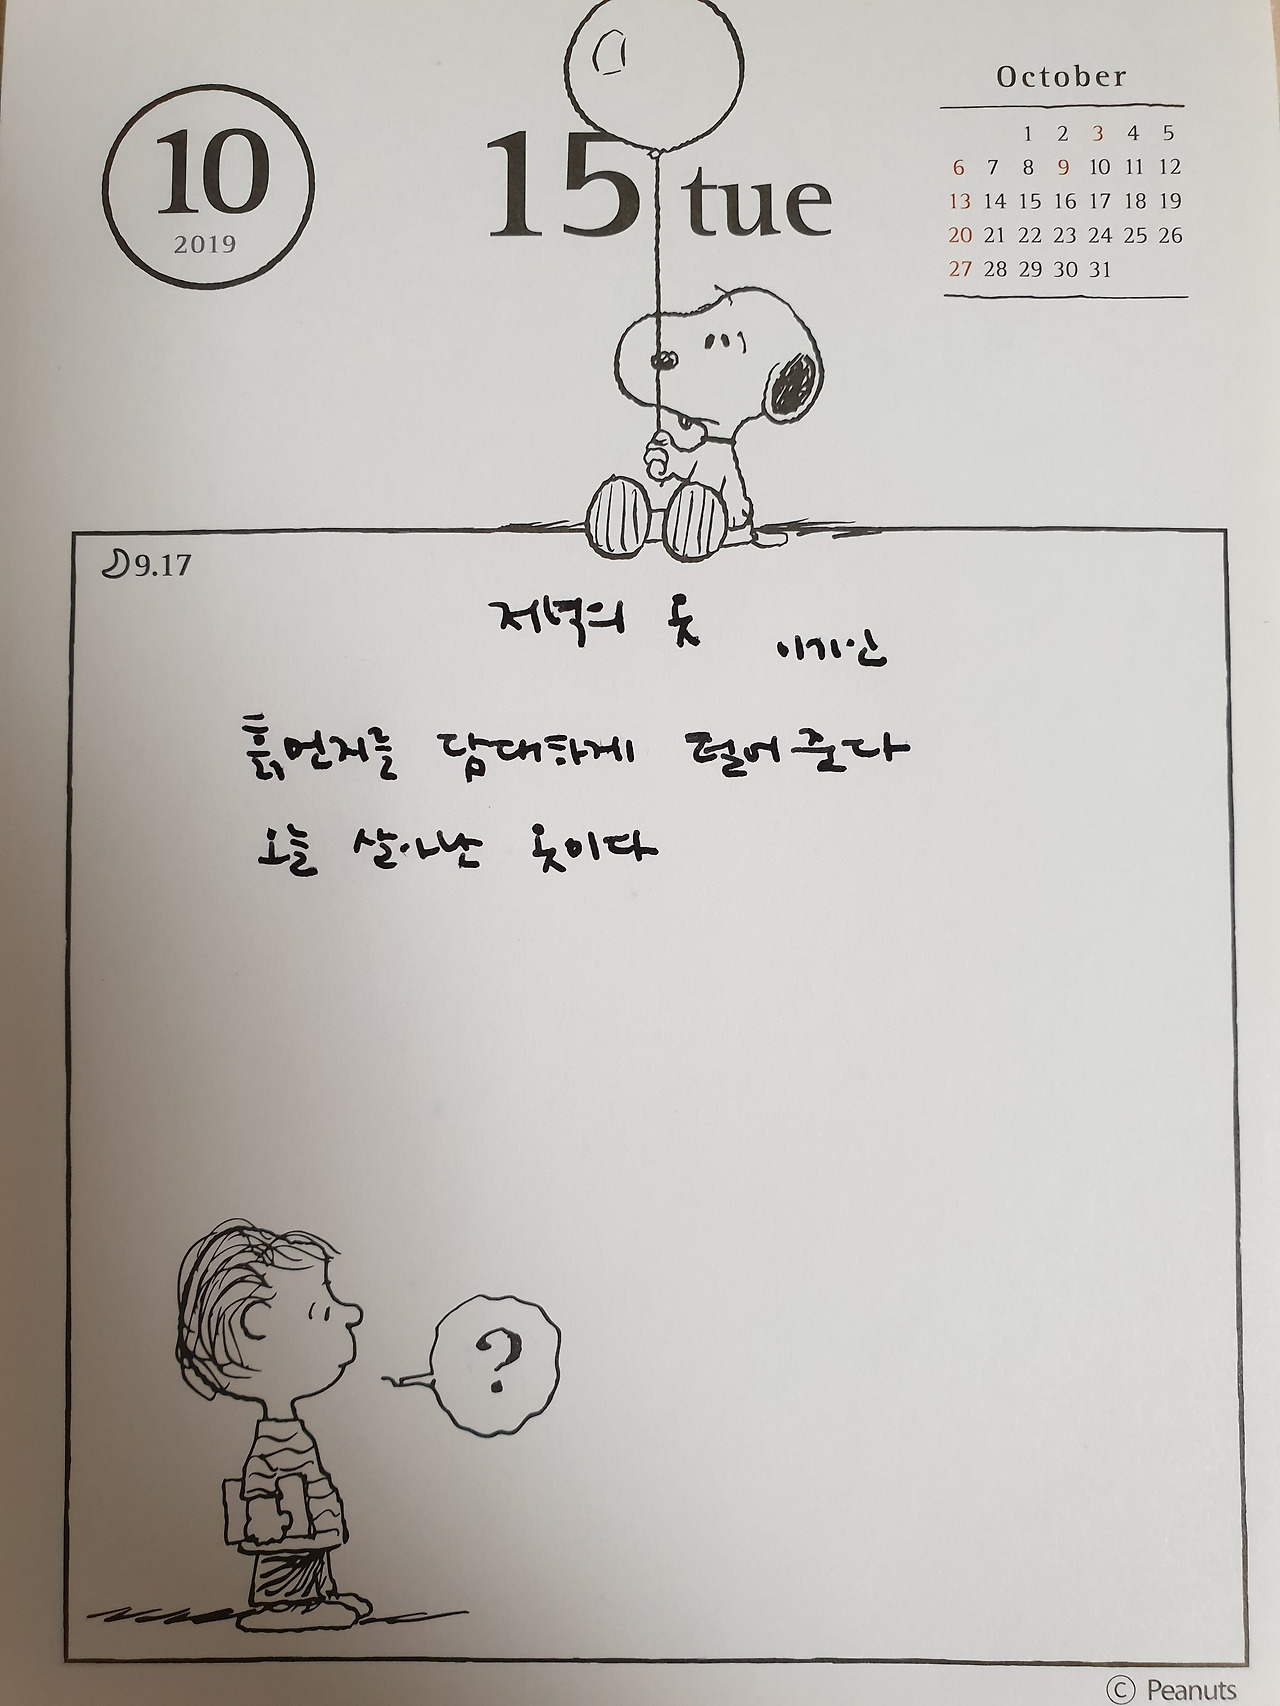 10
2019
15 tue
October
1 2 3 4 5
6 7 8 9 10 11 12
13 14 15 16 17 18 19
20 21 22 23 24 25 26
27 28 29 30 31
9.17
저녁의 옷
이기인
흙먼지를 담대하게 털어준다
오늘 살아난 옷이다
?
© Peanuts